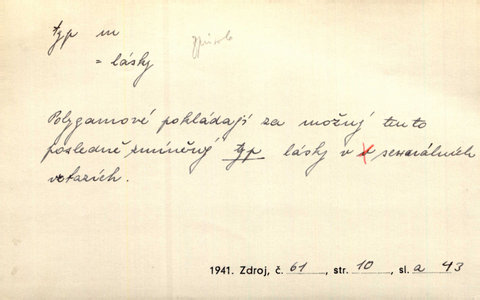 typ m
způsob
= lásky
Polygamové pokládají za možný tento
posledně zmíněný typ lásky v sexuálních
vztazích.
1941. Zdroj, č. 61, str. 10, sl. a 43